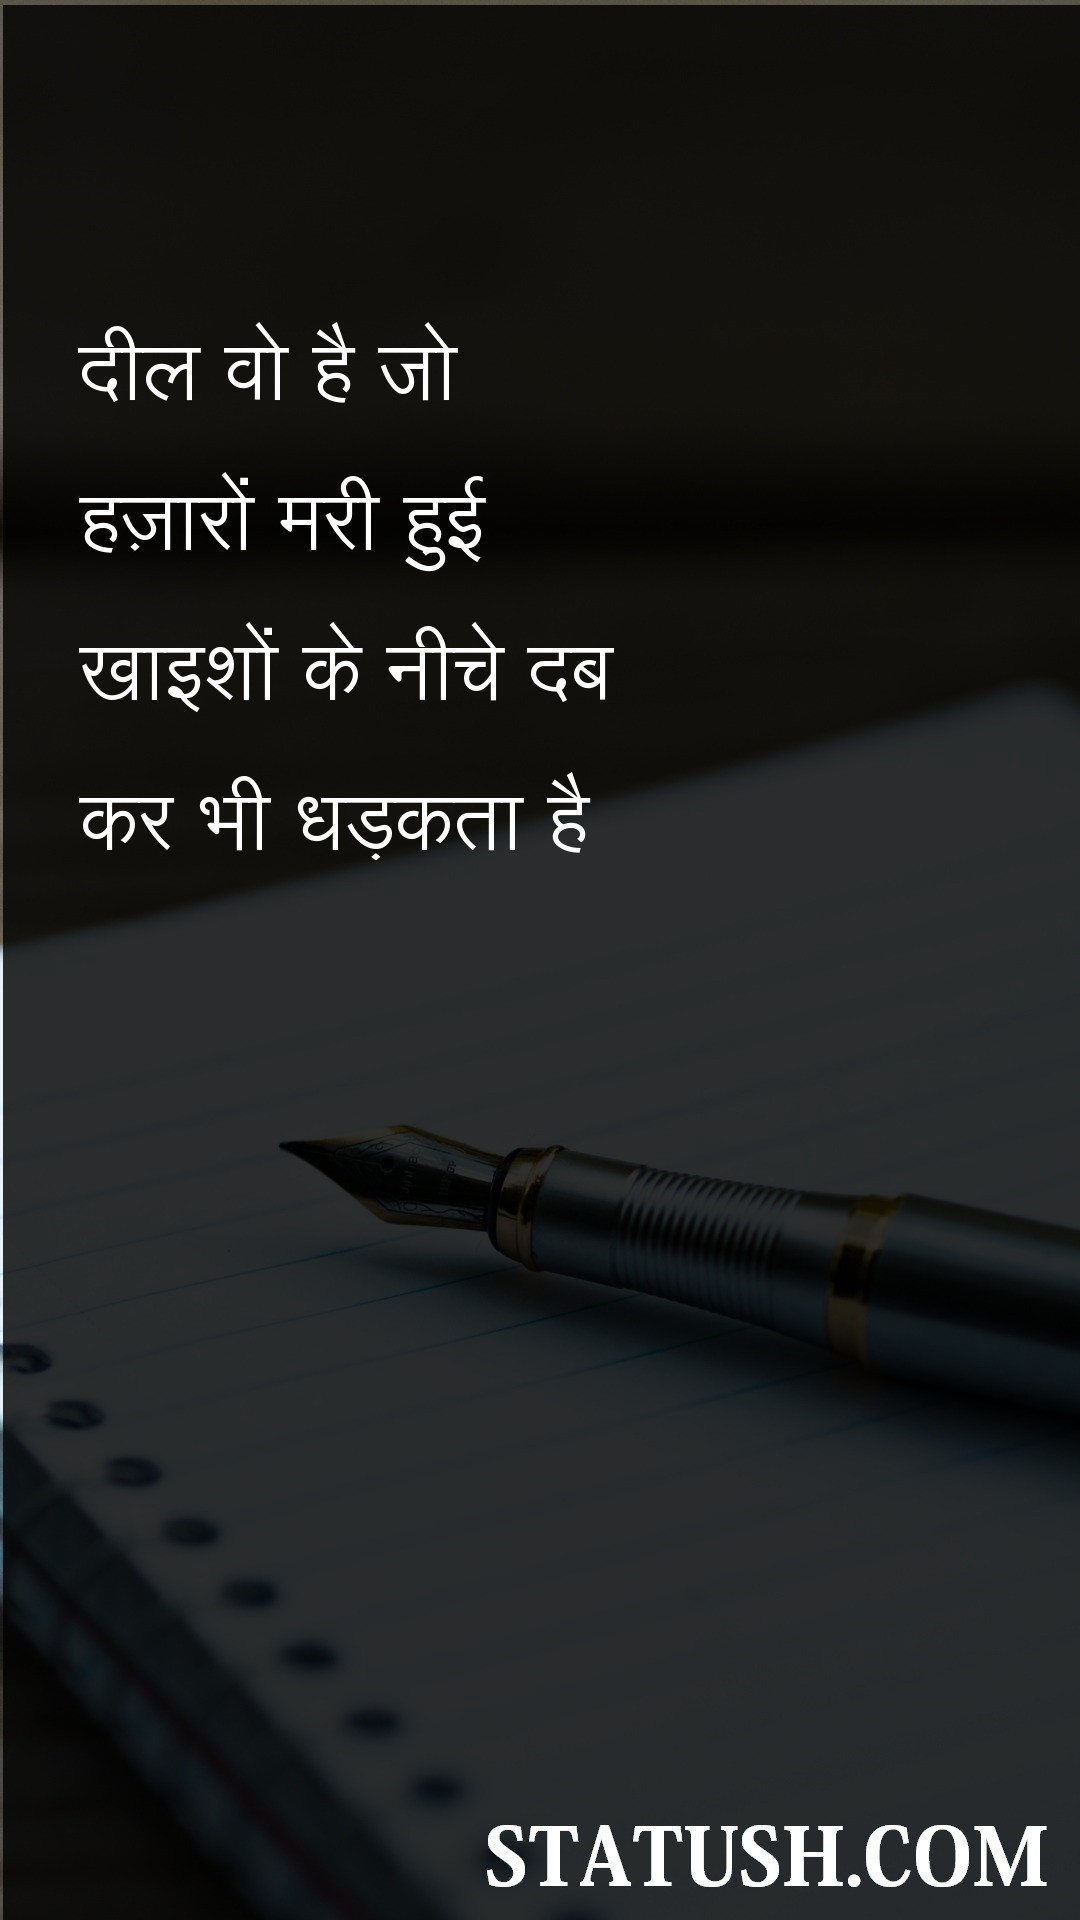 दील वो है जो
हज़ारों मरी हुई
खाइशों के नीचे दब
कर भी धड़कता है
STATUSH.COM